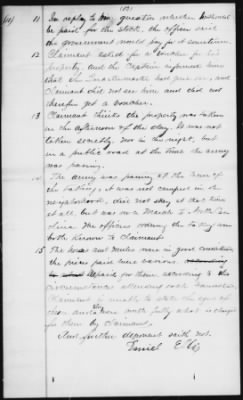 (13)
11 In reply to my question whether he should
be paid for the stock, the officer said
the government would pay for it sometime.
12 Claimant asked for a voucher for his
property, and the Captain informed him
that the Quartermaster had gone on, and
Claimant did not see him and did not
therefore get a voucher.
13 Claimant thinks the property was taken
in the afternoon of the day. It was not
taken secretly, nor in the night, but
in a public road at the time the army
was passing.
14 The army was passing at the time of
the taking; it was not camped in the
neighborhood, did not stay at that time
at all, but was on a march to North Car-
olina. The officers ordering the taking un-
both known to Claimant.
15 The horse and mules were in good condition
the prices paid were various
paid for them, according to the
circumstances attending each transaction
Claimant is unable to state the ages of
them and were worth fully what is charged
for them by Claimant.
And further deponent saith not.
Daniel Ellis